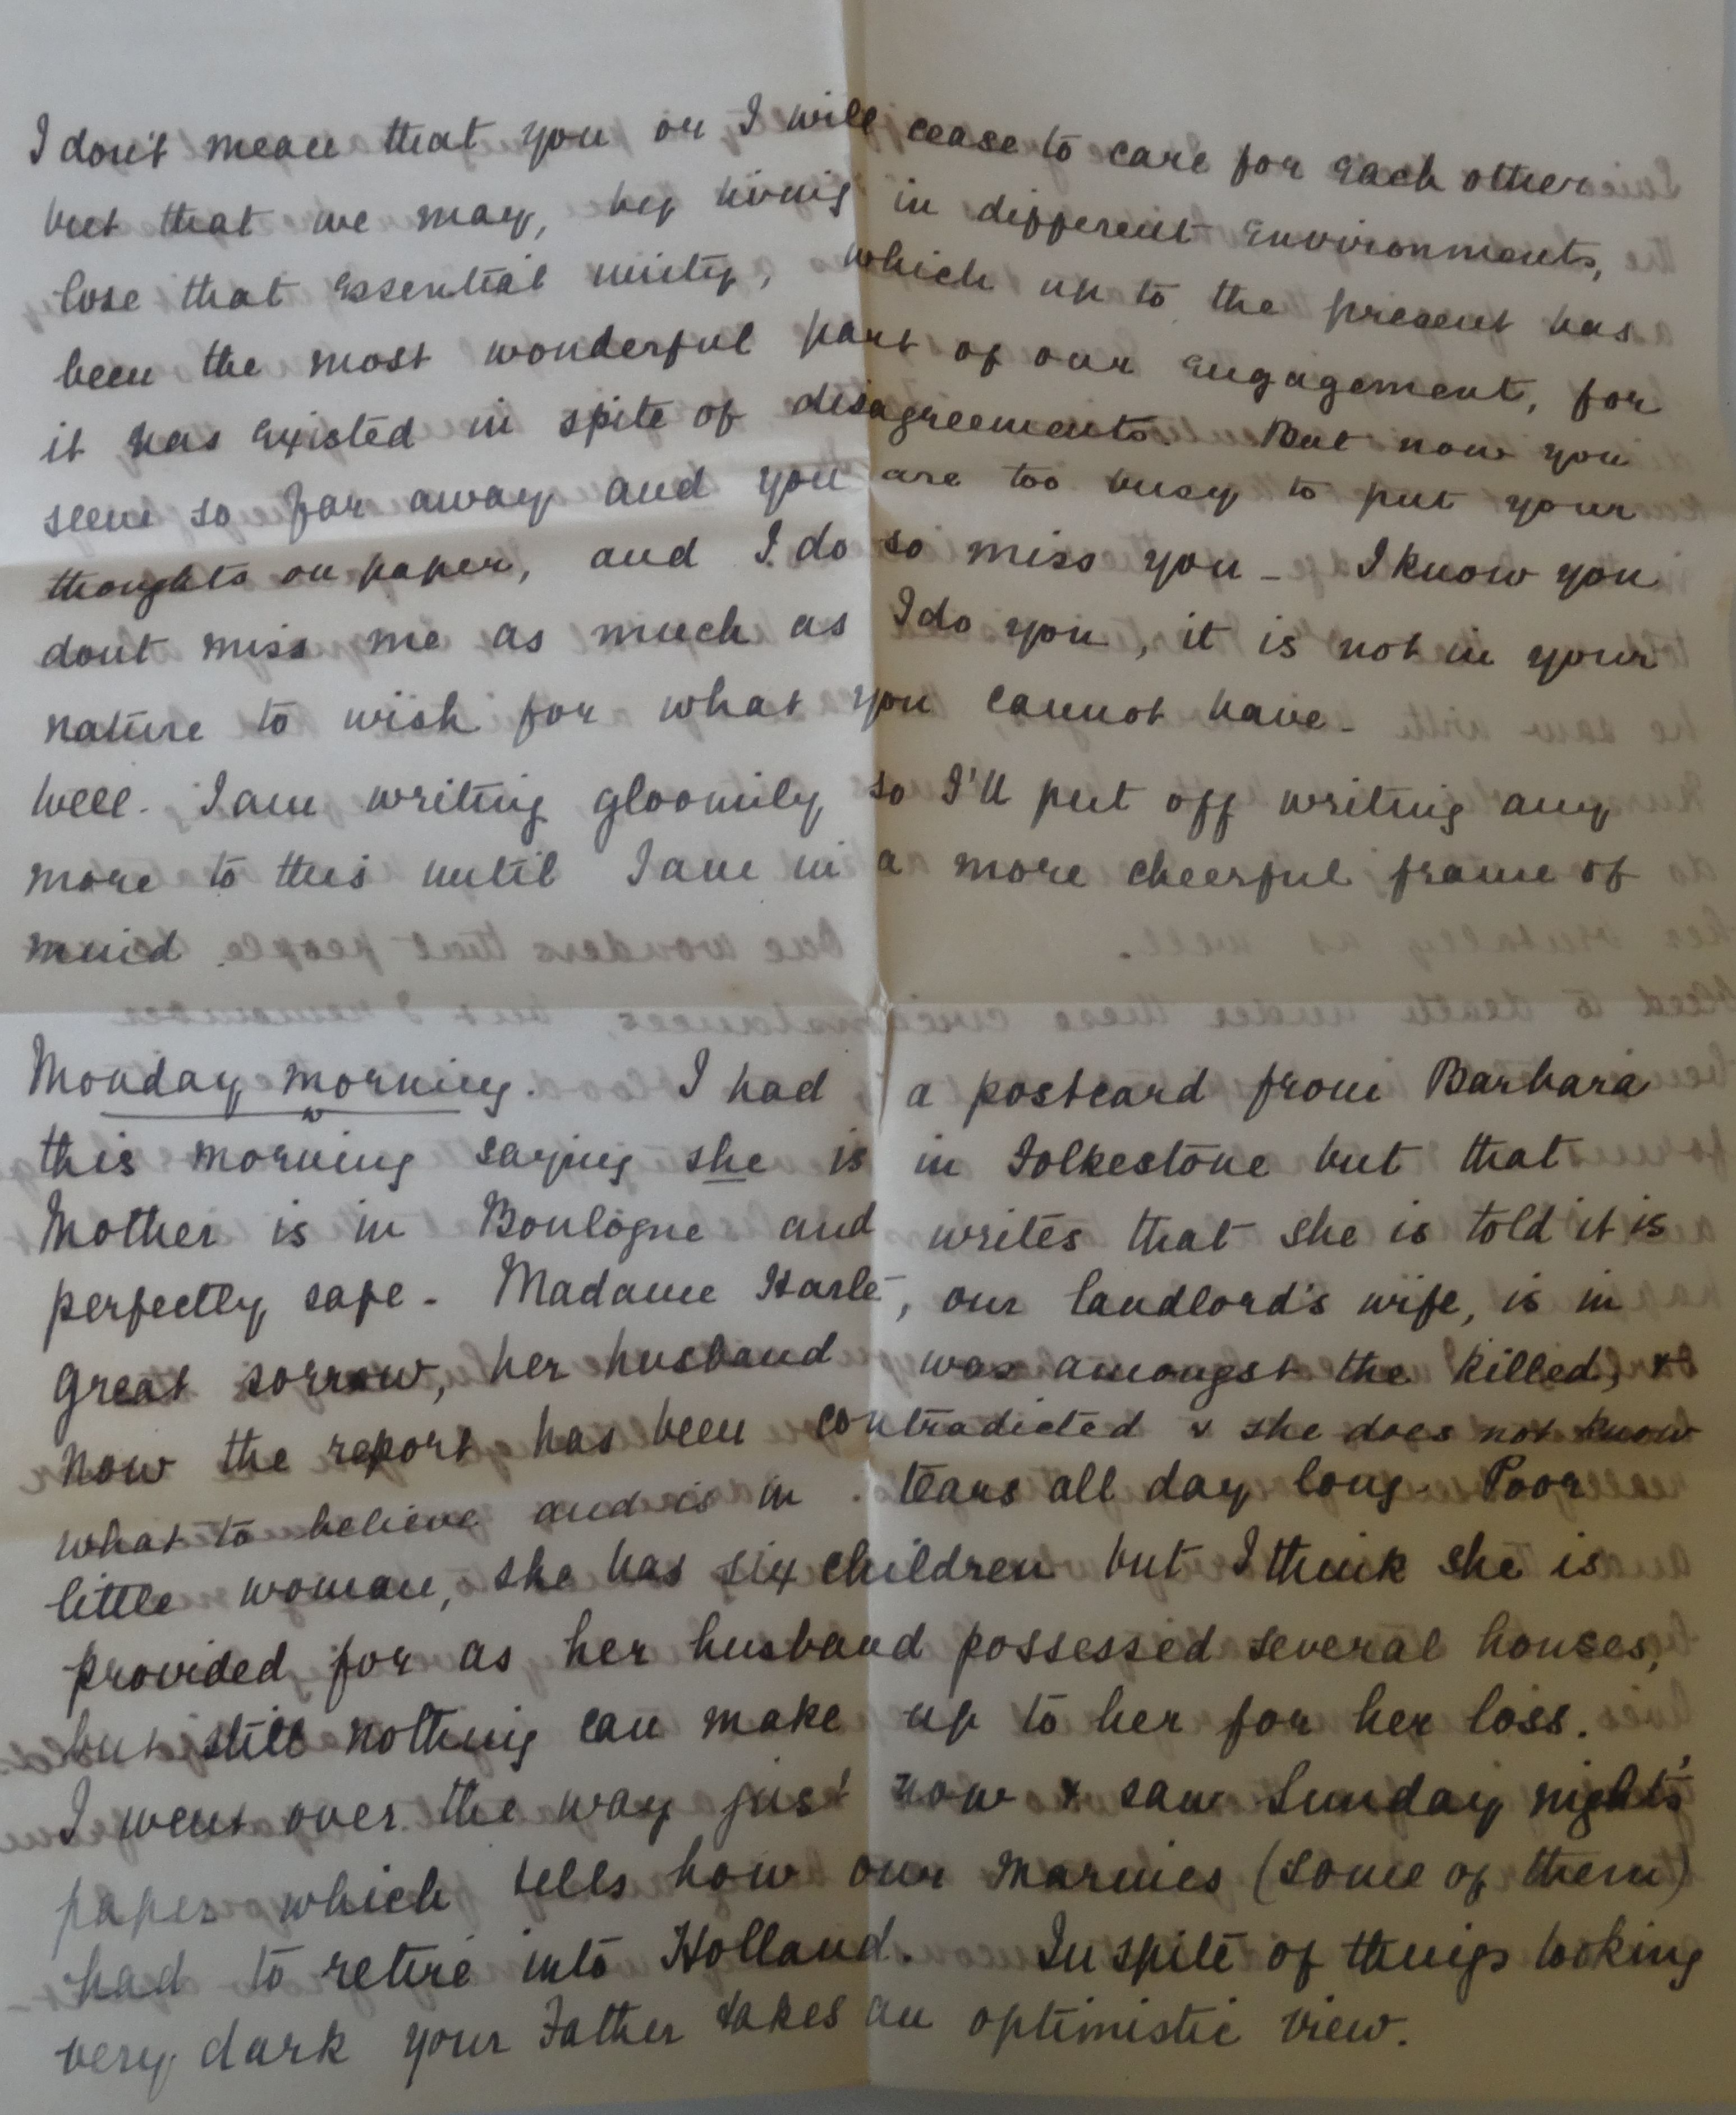 I don't mean that you or I will cease to care for each other
but that we may, by living in different environments,
lose that essential unity, which up to the present has
been the most wonderful part of our engagement, for
it has existed in spite of disagreements. But now you
seem so far away and you are too busy to put your
thoughts on paper, and I do so miss you - I know you
dont miss me as much as I do you, it is not in your
nature to wish for what you cannot have -
Well - I am writing gloomily so I'll put off writing any
more to this until I am in a more cheerful frame of
mind.
Monday morning. I had a postcard from Barbara
this morning saying she is in Folkestone but that
Mother is in Boulogne and writes that she is told it is
perfectly safe - Madame Harlé, our landlord's wife, is in
great sorrow, her husband was amongst the killed, &
now the report has been contradicted & she does not know
what to believe and is in tears all day long - Poor
little woman, she has six children but I think she is
provided for as her husband possessed several houses,
but still nothing can make up to her for her loss.
I went over the way just now & saw Sunday night's
paper which tells how our Marines (some of them)
had to retire into Holland. In spite of things looking
very dark your Father takes an optimistic view.